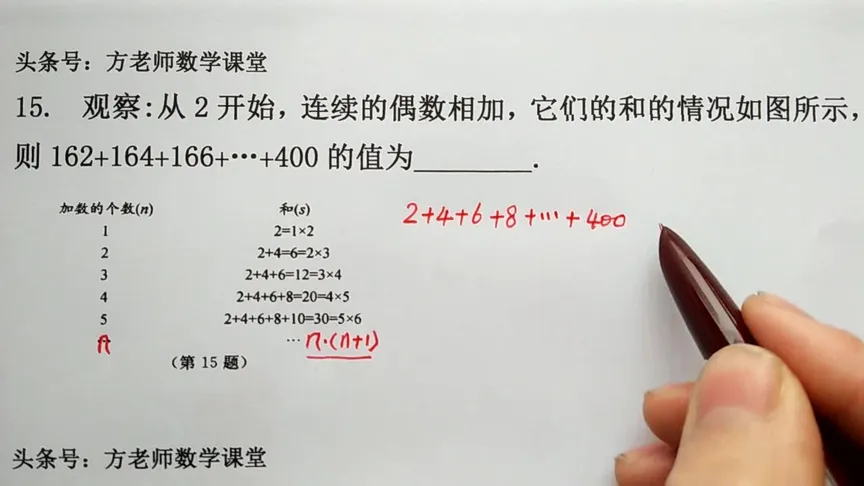 头条号：方老师数学课堂
15. 观察:从2开始，连续的偶数相加，它们的和的情况如图所示，
则162+164+166+…+400的值为________.
加数的个数(n) 和(s)
1 2=1×2
2 2+4=6=2×3
3 2+4+6=12=3×4
4 2+4+6+8=20=4×5
5 2+4+6+8+10=30=5×6
n … n·(n+1)
（第15题）
2+4+6+8+…+400
头条号：方老师数学课堂